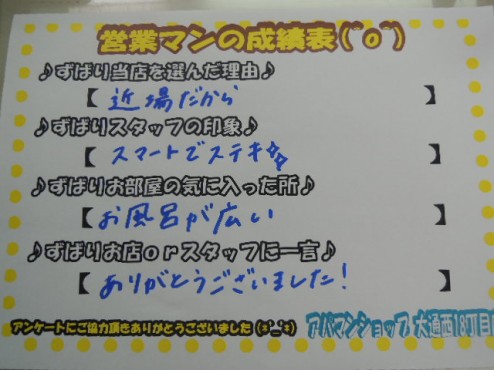 営業マンの成績表(^o^)
♪ずばり当店を選んだ理由♪
【 近場だから 】
♪ずばりスタッフの印象♪
【 スマートでステキ 】
♪ずばりお部屋の気に入った所♪
【 お風呂が広い 】
♪ずばりお店orスタッフに一言♪
【 ありがとうございました! 】
アンケートにご協力頂きありがとうございました
アパマンショップ 大通西18丁目